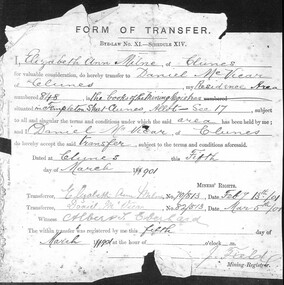 FORM OF TRANSFER.
BYE-LAW No. XI.—SCHEDULE XIV.
I, Elizabeth Ann Milne of Clunes
for valuable consideration, do hereby transfer to Daniel McVicar
of Clunes my Residence Area
numbered 848 in the book of the Mining Registrar
situated in Street Clunes, Allot Sec 17 subject
to all and singular the terms and conditions under which the said area has been held by me; and
I Daniel McVicar of Clunes
do hereby accept the said transfer subject to the terms and conditions aforesaid.
Dated at Clunes this Fifth
day of March 1901
MINERS' RIGHTS.
Transferror, Elizabeth Ann Milne No. Date Feb 15th/01
Transferree, Daniel McVicar No. Date Mar 5th/01
Witness Albert
The within transfer was registered by me this fifth day of
March 1901 at the hour of o'clock m.
Mining-Registrar.